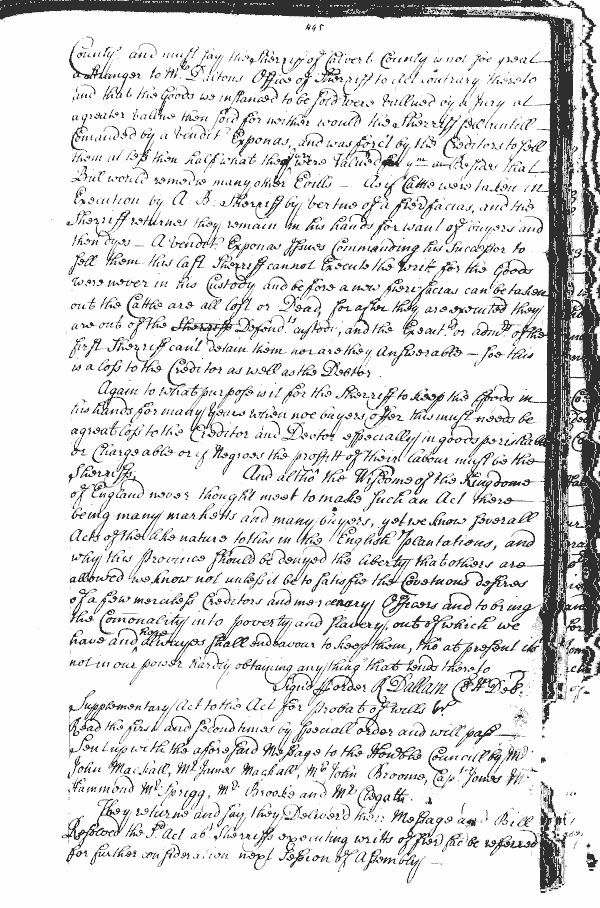 445
County. and must say the Sherriff of Calvert County is not soe great
a stranger to Mr. Daltons Office of Sherriff to Act contrary thereto
and that the Goods we instanced to be sold were vallued by a Jury at
a greater value then sold for neither would the Sherriff sell untill
Comanded by a Vendit Exponas, and was forc'd by the Creditors to sell
them at less then half what they were Valued for ym at Besides that
Bill would remedie many other Evills – As if Cattle were taken in
Execution by A. B. Sherriff by vertue of a fierifacias, and the
Sherriff returnes they remain in his hands for want of buyers and
then dyes – A vendit Exponas Issues Commanding his Successor to
sell them this last Sherriff cannot Execute the writ for the Goods
were never in his Custody and before a new fierifacias can be taken
out the Cattle are all lost or Dead, for after they are executed they
are out of the Sherriffs Defend.ts custody, and the Execut.r or adm.r of the
first Sherriff can't detain them nor are they Answerable – soe this
is a loss to the Creditor as well as the Debtor.
Again to what purpose is it for the Sherriff to keep the Goods in
his hands for many years when noe buyers offer this must needs be
a great loss to the Creditor and Debtor especially in goods perishable
or Chargeable or if Negroes the proffitt of their labour must be the
Sherriffs. And altho' the Wisdome of the Kingdome
of England never thought meet to make such an Act there
being many marketts and many buyers, yet we know severall
Acts of the like nature to this in the English Plantations, and
why this Province should be denyed the liberty that others are
allowed we know not unless it be to satisfie the Covetuous desires
of a few merciless Creditors and mercenary Officers and to bring
the Comonality into poverty and slavery, out of which we
have and hope allwayes shall endeavour to keep them, tho at present it is
not in our power hardly obtaining any thing that tends thereto
Signd p order R Dallam Cl H Del.
Supplementary Act to the Act for Probat of wills &c.
Read the first and second times by speciall order and will pass –
Sent up with the aforesaid Message to the Honble Councill by Mr
John Mackall, Mr James Mackall, Mr John Broome, Cap.t Jones Mr
Hammond Mr Sprigg, Mr Brooke and Mr Clegatt.
They returne and say, they Delivered their Message and Bill
Resolved the s.d Act ab.t Sherriffs executing writts of fieri fac be referred
for further consideration next Session of Assembly –